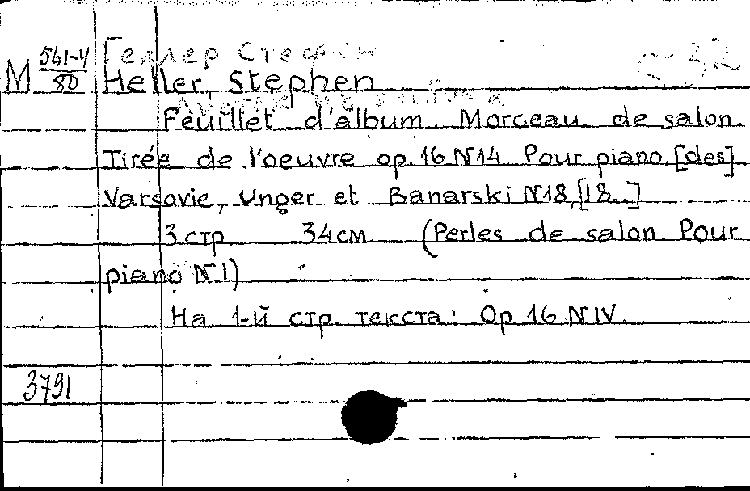 Геллер Стефен
М 541-4/80 Heller, Stephen
Feuillet d'album. Morceau de salon.
Tirée de l'oeuvre op. 16 N14. Pour piano. [des]
Varsovie, Unger et Banarski N18, [18..]
3 стр. 34 см. (Perles de salon Pour
piano N1)
На 1-й стр. текста: Op. 16 N IV.
3791